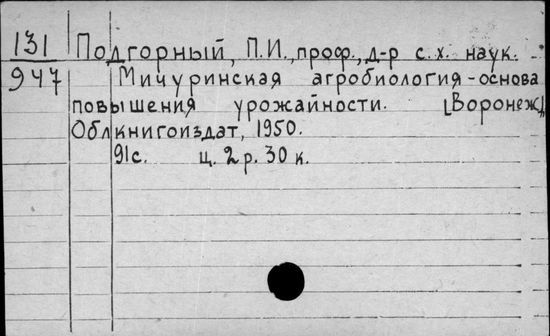 131 Подгорный, П.И., проф., д-р с.х. наук.
947 Мичуринская агробиология-основа
повышения урожайности. [Воронеж],
Облкнигоиздат, 1950.
91с. ц. 2 р. 30 к.